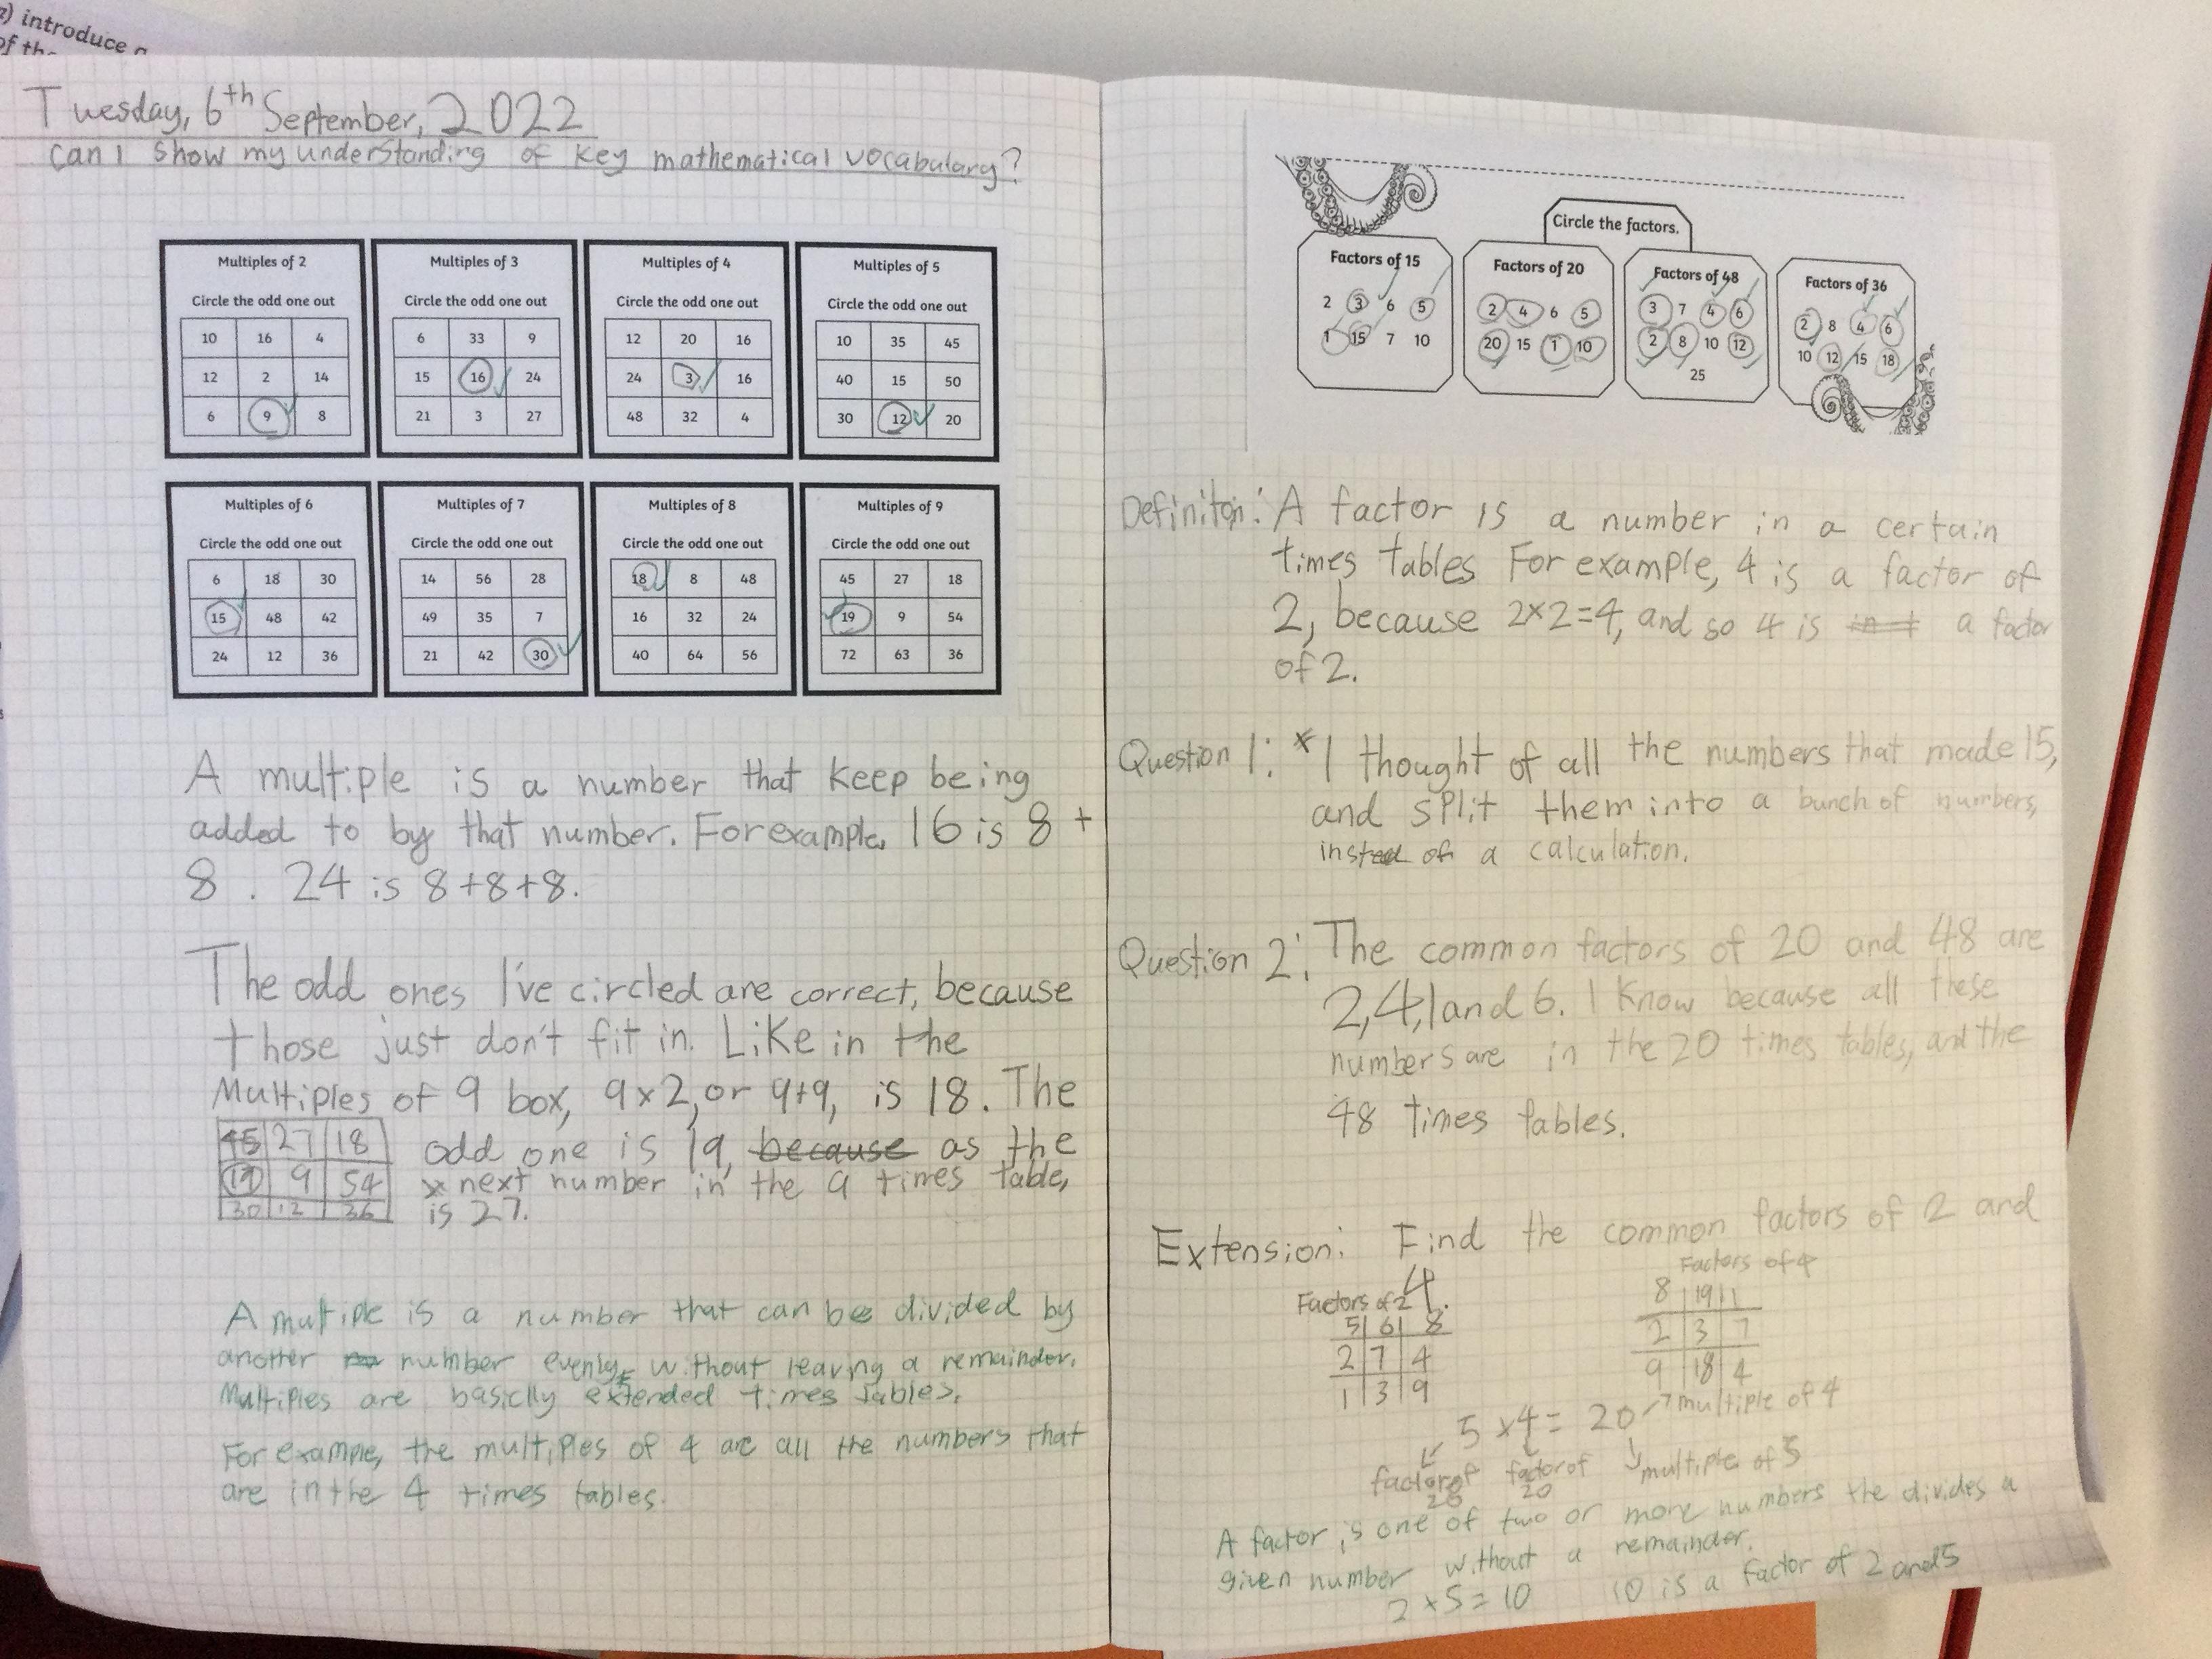 z) introduce a
of the
Tuesday, 6th September, 2022
Can I show my understanding of key mathematical vocabulary?
Multiples of 2
Circle the odd one out
10 16 4
12 2 14
6 9 8
Multiples of 3
Circle the odd one out
6 33 9
15 16 24
21 3 27
Multiples of 4
Circle the odd one out
12 20 16
24 3 16
48 32 4
Multiples of 5
Circle the odd one out
10 35 45
40 15 50
30 12 20
Multiples of 6
Circle the odd one out
6 18 30
15 48 42
24 12 36
Multiples of 7
Circle the odd one out
14 56 28
49 35 7
21 42 30
Multiples of 8
Circle the odd one out
18 8 48
16 32 24
40 64 56
Multiples of 9
Circle the odd one out
45 27 18
19 9 54
72 63 36
A multiple is a number that keep being
added to by that number. For example, 16 is 8 +
8 . 24 is 8+8+8.
The odd ones I've circled are correct, because
those just don't fit in. Like in the
Multiples of 9 box, 9x2, or 9+9, is 18. The
odd one is 19, because as the
next number in the 9 times table,
is 27.
45 27 18
19 9 54
30 12 36
A multiple is a number that can be divided by
another number evenly, without leaving a remainder.
Multiples are basiclly extended times tables.
For example, the multiples of 4 are all the numbers that
are in the 4 times tables.
Circle the factors.
Factors of 15
2 3 6 5
1 15 7 10
Factors of 20
2 4 6 5
20 15 1 10
Factors of 48
3 7 4 6
2 8 10 12
25
Factors of 36
2 8 4 6
10 12 15 18
Definiton: A factor is a number in a certain
times tables For example, 4 is a factor of
2, because 2x2=4, and so 4 is a factor
of 2.
Question 1: *I thought of all the numbers that made 15,
and split them into a bunch of numbers,
insted of a calculation.
Question 2: The common factors of 20 and 48 are
2,4,1 and 6. I know because all these
numbers are in the 20 times tables, and the
48 times tables.
Extension: Find the common factors of 2 and
4.
Factors of 2
5 6 8
2 7 4
1 3 9
Factors of 4
8 19 1
2 3 7
9 18 4
5 x4= 20 multiple of 4
factor of 20 factor of 20 multiple of 5
A factor is one of two or more numbers the divides a
given number without a remainder.
2 x5=10 10 is a factor of 2 and 5